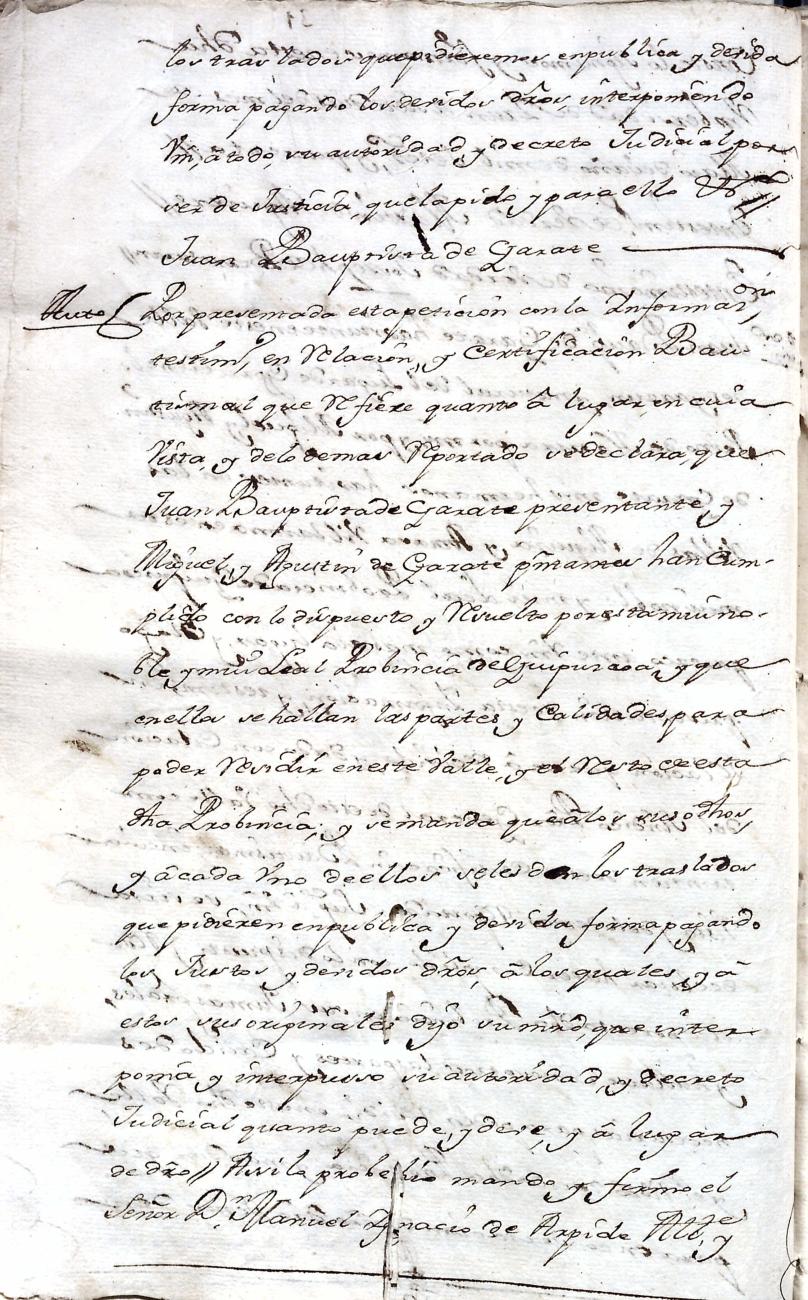 los traslados que pidieremos en publica y devida
forma pagando los devidos dros, interponiendo
Vm, â todo, su autoridad, y decreto Judicial por
ser de Justicia, que la pido, y para ello &ª
Juan Bauptista de Garate
Auto Por presentada esta peticion con la Informaon,
testimo, en Relacion, y Certificacion Bau-
tismal que Refiere quanto â lugar, en cuia
Vista, y de lo demas Reportado se declara, que
Juan Bauptista de Garate presentante, y
Miguel, y Agustin de Garate pñtantes han Cum-
plido con lo dispuesto, y Resuelto por esta mui no-
ble, y mui Leal Probincia de Guipuzcoa, y que
en ellos se hallan las partes, y Calidades, para
poder Residir en este Valle, y el Resto de esta
dha Probincia; y se manda que â los susodhos,
y â cada Vno de ellos se les den los traslados
que pidieren en publica y devida forma pagando
los Justos y devidos dros, â los quales, y â
estos sus originales dijo su mrd, que inter
ponia y interpusso su autoridad, y decreto
Judicial quanto puede, y deve, y â lugar
de dro // Assi lo probeyo mando y firmo el
Señor Dn Manuel Ygnacio de Arpide Allde, y